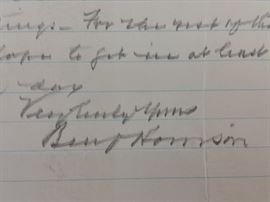 ings - For the rest of the
hope to get in at least
day
Very truly yours
Benj Harrison